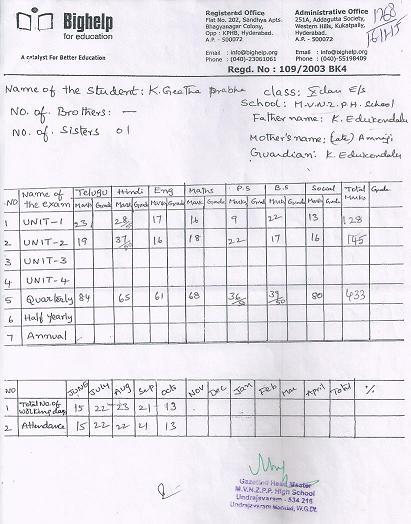 Bighelp
for education
A catalyst For Better Education
Registered Office
Flat No. 202, Sandhya Apts.
Bhagyanagar Colony,
Opp : KPHB, Hyderabad.
A.P. - 500072
Email : info@bighelp.org
Phone : (040)-23061061
Administrative Office
251A, Addagutta Society,
Western Hills, Kukatpally,
Hyderabad.
A.P. - 500072
Email : info@bighelp.org
Phone : (040)-55198409
Regd. No : 109/2003 BK4
1268
Name of the Student: K. Geetha Prabha class: E/s
School: M.V.N.Z.P.H. School
NO. of Brothers: —
Father name: K. Edukondalu
NO. of Sisters 01
Mother's name: (late)
Guardian: K. Edukondalu
NO Name of the exam Telugu Hindi Eng Maths P.S B.S Social Total Marks Grade
Mark Grade Mark Grade Mark Grade Mark Grade Mark Grade Mark Grade Mark Grade
1 UNIT-1 23 28/50 17 16 9 22 13 128
2 UNIT-2 19 37/50 16 18 22 17 16 145
3 UNIT-3
4 UNIT-4
5 Quarterly 84 65 61 68 36/50 39/50 80 433
6 Half Yearly
7 Annual
NO JUNE JULY Aug Sep Octs Nov Dec Jan Feb Mar April Total %
1 Total No. of Working days 15 22 23 21 13
2 Attendance 15 22 22 21 13
Gazetted Head Master
M.V.N.Z.P.P. High School
Undrajavaram - 534 216
Undrajavaram Mandal, W.G.Dt.